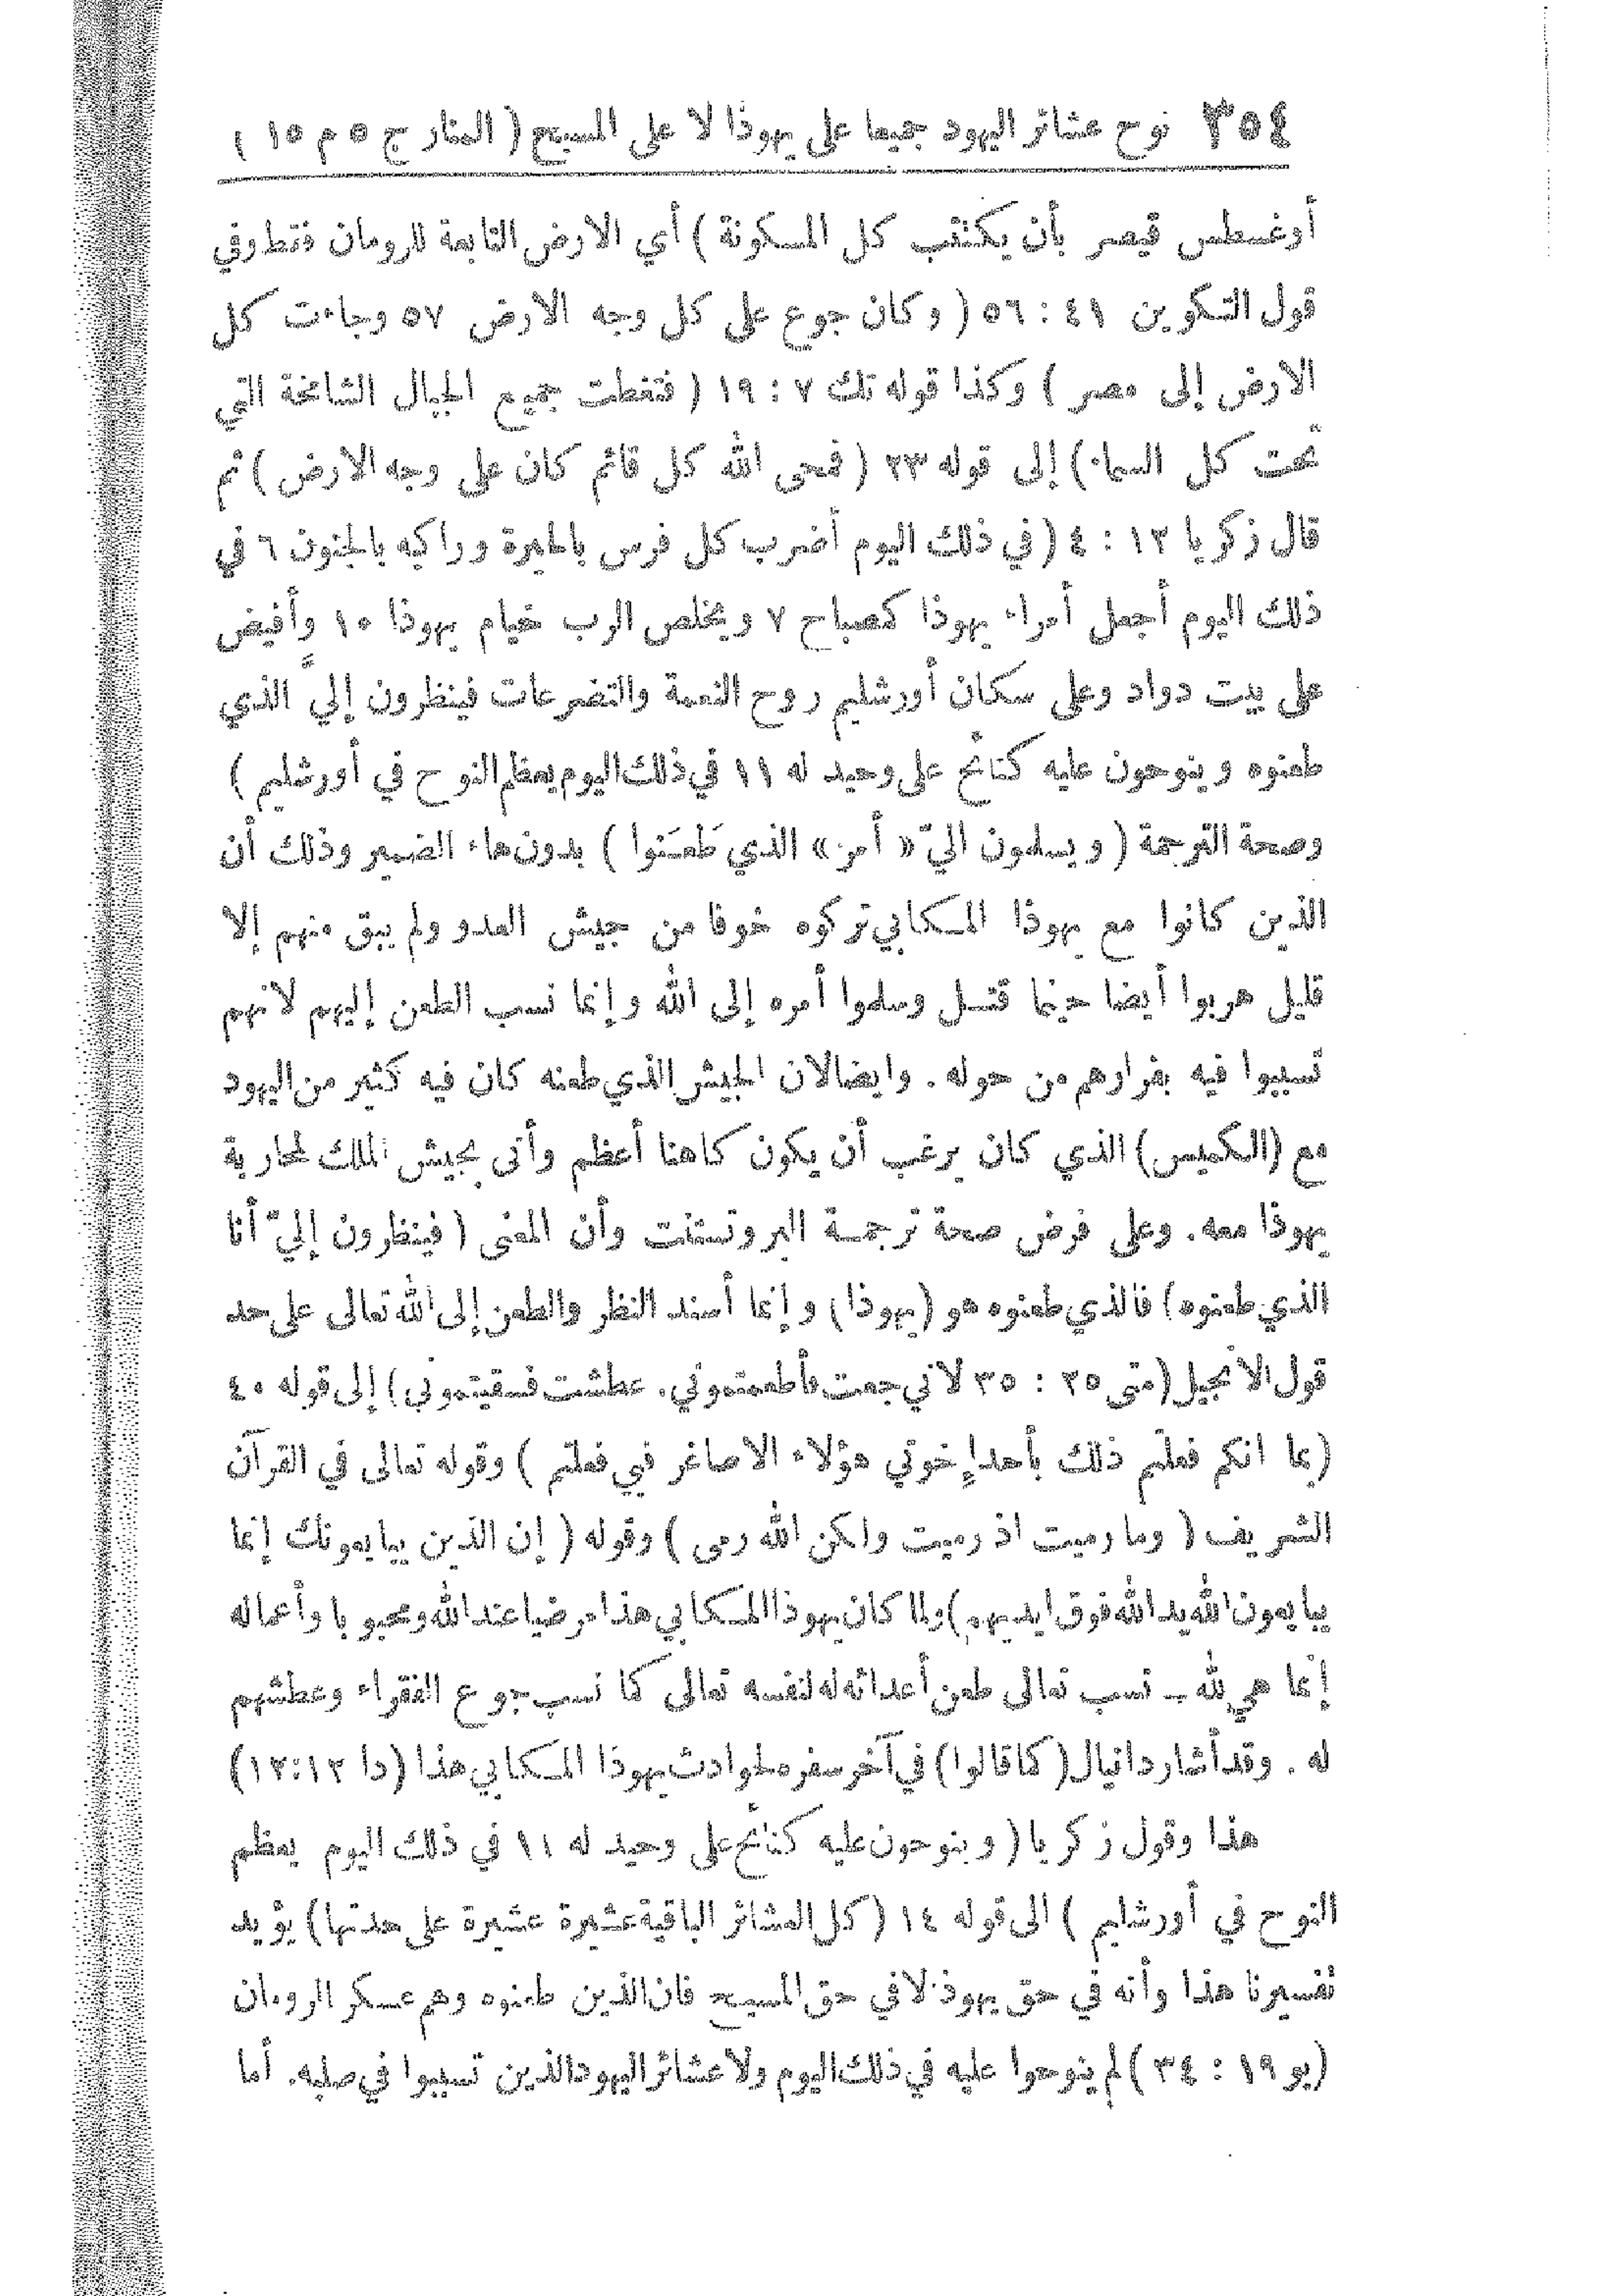 ٣٥٤ نوح عشائر اليهود جميعا على يهوذا لا على المسيح ( المنار ج ٥ م ١٥ )
أوغسطس قيصر بأن يكتتب كل المسكونة ) أي الارض التابعة للرومان فقط وفي
قول التكوين ٤١ : ٥٦ ( وكان جوع على كل وجه الارض ٥٧ وجاءت كل
الارض إلى مصر ) وكذا قوله تك ٧ : ١٩ ( فتغطت جميع الجبال الشامخة التي
تحت كل السماء) إلى قوله ٢٣ ( فمحى الله كل قائم كان على وجه الارض ) ثم
قال زكريا ١٢ : ٤ ( في ذلك اليوم أضرب كل فرس بالحيرة وراكبه بالجنون ٦ في
ذلك اليوم أجعل أمراء يهوذا كمصباح ٧ ويخلص الرب خيام يهوذا ١٠ وأفيض
على بيت دواد وعلى سكان أورشليم روح النعمة والتضرعات فينظرون إليَّ الذي
طعنوه وينوحون عليه كنائح على وحيد له ١١ في ذلك اليوم يعظم النوح في أورشليم )
وصحة الترجمة ( ويسلمون اليّ « أمر » الذي طَعَنوا ) بدون هاء الضمير وذلك أن
الذين كانوا مع يهوذا المكابي تركوه خوفا من جيش العدو ولم يبق منهم إلا
قليل هربوا أيضا حينما قتل وسلموا أمره إلى الله وإنما نسب الطعن إليهم لانهم
تسببوا فيه بفرارهم من حوله . وايضا لان الجيش الذي طعنه كان فيه كثير من اليهود
مع (الكميس) الذي كان يرغب أن يكون كاهنا أعظم وأتى بجيش الملك لمحاربة
يهوذا معه. وعلى فرض صحة ترجمة البروتستنت وأن المعنى ( فينظرون إليّ أنا
الذي طعنوه) فالذي طعنوه هو (يهوذا) وإنما أسند النظر والطعن إلى الله تعالى على حد
قول الانجيل (متى ٢٥ : ٣٥ لاني جعت فأطعمتموني. عطشت فسقيتموني) إلى قوله ٤٠
(بما انكم فعلتم ذلك بأحد إخوتي هؤلاء الاصاغر فبي فعلتم ) وقوله تعالى في القرآن
الشريف ( وما رميت اذ رميت ولكن الله رمى ) وقوله ( إن الذين يبايعونك إنما
يبايعون الله يد الله فوق ايديهم ) ولما كان يهوذا المكابي هذا مرضيا عند الله ومحبوبا وأعماله
إنما هي لله ــ نسب تعالى طعن أعدائه له لنفسه تعالى كما نسب جوع الفقراء وعطشهم
له . وقد أشار دانيال ( كما قالوا ) في آخر سفره لحوادث يهوذا المكابي هذا (دا ١٢:١٢)
هذا وقول زكريا ( وينوحون عليه كنائح على وحيد له ١١ في ذلك اليوم يعظم
النوح في أورشليم ) الى قوله ١٤ ( كل العشائر الباقية عشيرة عشيرة على حدتها ) يؤيد
تفسيرنا هذا وأنه في حق يهوذا لا في حق المسيح فان الذين طعنوه وهم عسكر الرومان
(يو ١٩ : ٣٤ ) لم ينوحوا عليه في ذلك اليوم ولا عشائر اليهود الذين تسببوا في صلبه. أما